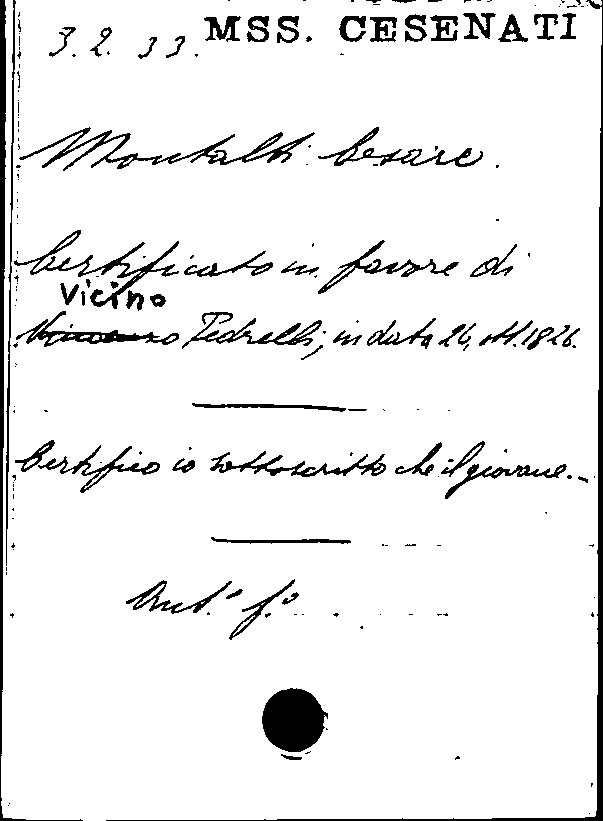 3.2.33. MSS. CESENATI
Montalti Cesare.
Certificato in favore di
Vicino
Vincenzo Pedrelli, in data 26, ott. 1826.
Certifico io sottoscritto che il giovane..
Aut.° f.°